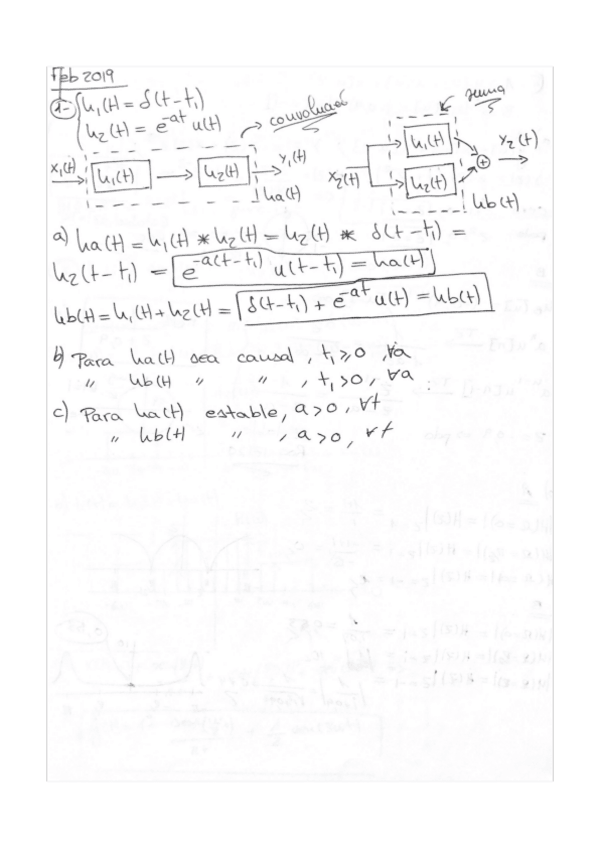 Feb 2019
1- h₁(t) = δ(t-t₁)
h₂(t) = e^-at u(t)
convolución
suma
x₁(t) h₁(t) h₂(t) y₁(t)
ha(t)
x₂(t) h₁(t) h₂(t) + y₂(t)
hb(t)
a) ha(t) = h₁(t) * h₂(t) = h₂(t) * δ(t-t₁) =
h₂(t-t₁) = e^-a(t-t₁) u(t-t₁) = ha(t)
hb(t) = h₁(t) + h₂(t) = δ(t-t₁) + e^-at u(t) = hb(t)
b) Para ha(t) sea causal, t₁ ≥ 0, ∀a
" hb(t) " " , t₁ > 0, ∀a
c) Para ha(t) estable, a > 0, ∀t
" hb(t) " , a > 0, ∀t